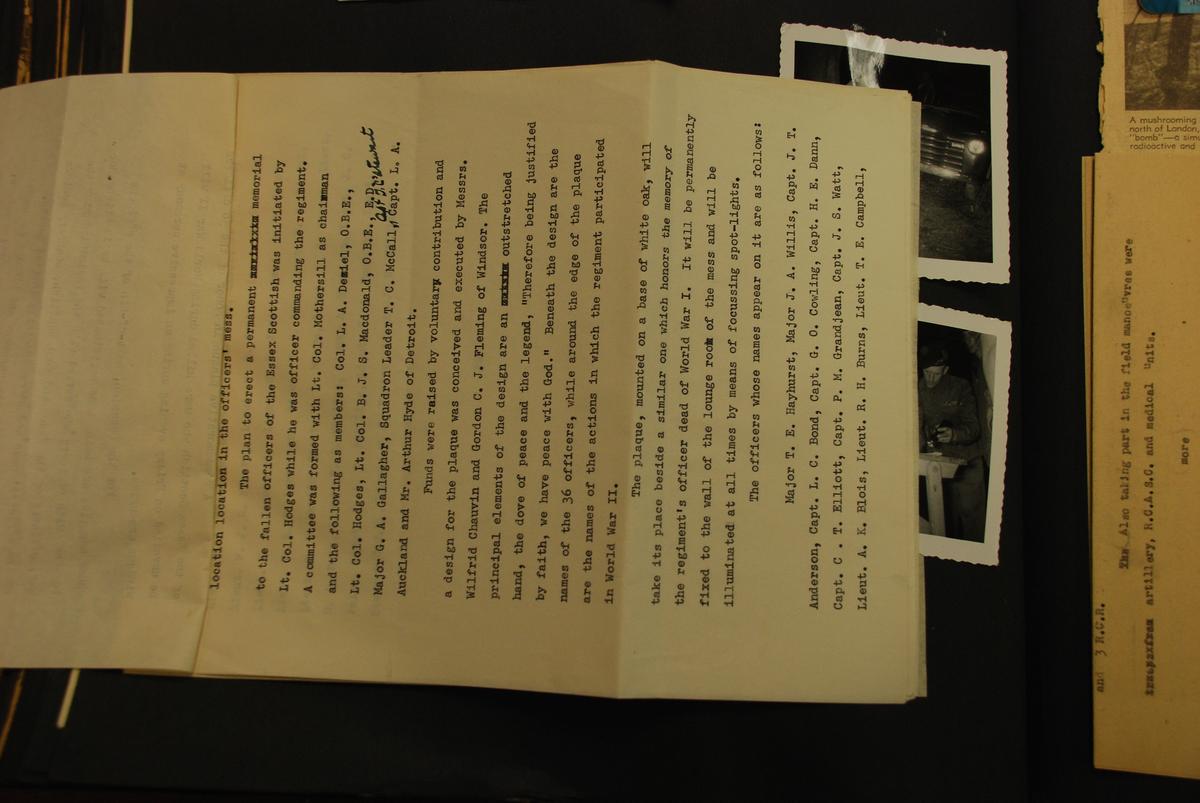 location location in the officers' mess.
The plan to erect a permanent memorial
to the fallen officers of the Essex Scottish was initiated by
Lt. Col. Hodges while he was officer commanding the regiment.
A committee was formed with Lt. Col. Mothersill as chairman
and the following as members: Col. L. A. Deziel, O.B.E.,
Lt. Col. Hodges, Lt. Col. B. J. S. Macdonald, O.B.E. E.D.
Major G. A. Gallagher, Squadron Leader T. C. McCall, Capt. L. A.
Auckland and Mr. Arthur Hyde of Detroit.
Funds were raised by voluntary contribution and
a design for the plaque was conceived and executed by Messrs.
Wilfrid Chauvin and Gordon C. J. Fleming of Windsor. The
principal elements of the design are an outstretched
hand, the dove of peace and the legend, "Therefore being justified
by faith, we have peace with God." Beneath the design are the
names of the 36 officers, while around the edge of the plaque
are the names of the actions in which the regiment participated
in World War II.
The plaque, mounted on a base of white oak, will
take its place beside a similar one which honors the memory of
the regiment's officer dead of World War I. It will be permanently
fixed to the wall of the lounge room of the mess and will be
illuminated at all times by means of focussing spot-lights.
The officers whose names appear on it are as follows:
Major T. E. Hayhurst, Major J. A. Willis, Capt. J. T.
Anderson, Capt. L. C. Bond, Capt. G. O. Cowling, Capt. H. E. Dann,
Capt. C . T. Elliott, Capt. P. M. Grandjean, Capt. J. S. Watt,
Lieut. A. K. Blois, Lieut. R. H. Burns, Lieut. T. E. Campbell,
A mushrooming
north of London,
"bomb"—a
radioactive and
and 3 R.C.R.
Also taking part in the field manoeuvres were
artillery, R.C.A.S.C. and medical units.
more